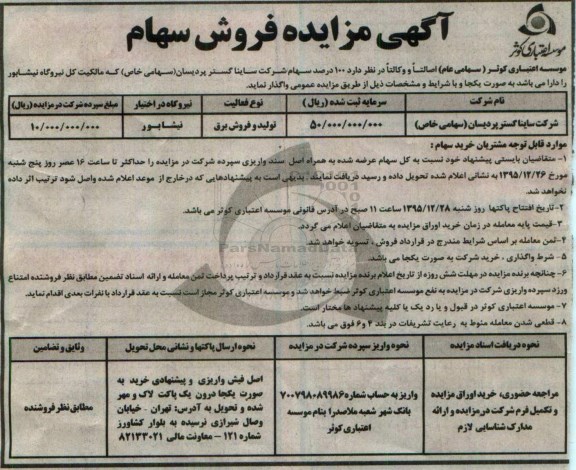 آگهی مزایده فروش سهام
موسسه اعتباری کوثر
موسسه اعتباری کوثر ( سهامی عام) اصالتاً و وکالتاً در نظر دارد ۱۰۰ درصد سهام شرکت ساینا گستر پردیسان(سهامی خاص) که مالکیت کل نیروگاه نیشابور
را دارا می باشد به صورت یکجا و با شرایط و مشخصات ذیل از طریق مزایده عمومی واگذار نماید.
نام شرکت
سرمایه ثبت شده (ریال )
نوع فعالیت
نیروگاه در اختیار
مبلغ سپرده شرکت در مزایده (ریال)
شرکت ساینا گستر پردیسان (سهامی خاص)
۵۰/۰۰۰/۰۰۰/۰۰۰
تولید و فروش برق
نیشابور
۱۰/۰۰۰/۰۰۰/۰۰۰
موارد قابل توجه مشتریان خرید سهام :
۱- متقاضیان بایستی پیشنهاد خود نسبت به کل سهام عرضه شده به همراه اصل سند واریزی سپرده شرکت در مزایده را حداکثر تا ساعت ۱۶ عصر روز پنج شنبه
مورخ ۱۳۹۵/۱۲/۲۶ به نشانی اعلام شده تحویل داده و رسید دریافت نمایند . بدیهی است به پیشنهادهایی که درخارج از موعد اعلام شده واصل شود ترتیب اثر داده
نخواهد شد.
۲-تاریخ افتتاح پاکتها روز شنبه ۱۳۹۵/۱۲/۲۸ ساعت ۱۱ صبح در آدرس قانونی موسسه اعتباری کوثر می باشد.
۳-قیمت پایه معامله در زمان خرید اوراق مزایده به متقاضیان اعلام می گردد.
۴-ثمن معامله بر اساس شرایط مندرج در قرارداد فروش ، تسویه خواهد شد.
۵- شرط واگذاری ، خرید شرکت به صورت یکجا می باشد.
۶-چنانچه برنده مزایده در مهلت شش روزه از تاریخ اعلام برنده مزایده نسبت به عقد قرارداد و ترتیب پرداخت ثمن معامله و ارائه اسناد تضمین مطابق نظر فروشنده امتناع
ورزد سپرده واریزی شرکت در مزایده به نفع موسسه اعتباری کوثر ضبط خواهد شد و موسسه اعتباری کوثر مجاز است نسبت به عقد قرارداد با نفرات بعدی اقدام نماید.
۷- موسسه اعتباری کوثر در قبول و یا رد یک یا کلیه پیشنهاد ها مختار است.
۸- قطعی شدن معامله منوط به رعایت تشریفات در بند ۴ و ۶ فوق می باشد.
نحوه دریافت اسناد مزایده
نحوه واریز سپرده شرکت در مزایده
نحوه ارسال پاکتها و نشانی محل تحویل
وثایق و تضامین
مراجعه حضوری، خرید اوراق مزایده
و تکمیل فرم شرکت در مزایده و ارائه
مدارک شناسایی لازم
واریز به حساب شماره ۷۰۰۷۹۸۰۸۹۹۸۶
بانک شهر شعبه ملاصدرا بنام موسسه
اعتباری کوثر
اصل فیش واریزی و پیشنهادی خرید به
صورت یکجا درون یک پاکت لاک و مهر
شده و تحویل به آدرس: تهران _ خیابان
وصال شیرازی نرسیده به بلوار کشاورز
شماره ۱۲۱- معاونت مالی ۸۲۱۳۳۰۲۱
مطابق نظر فروشنده
ParsNamadData